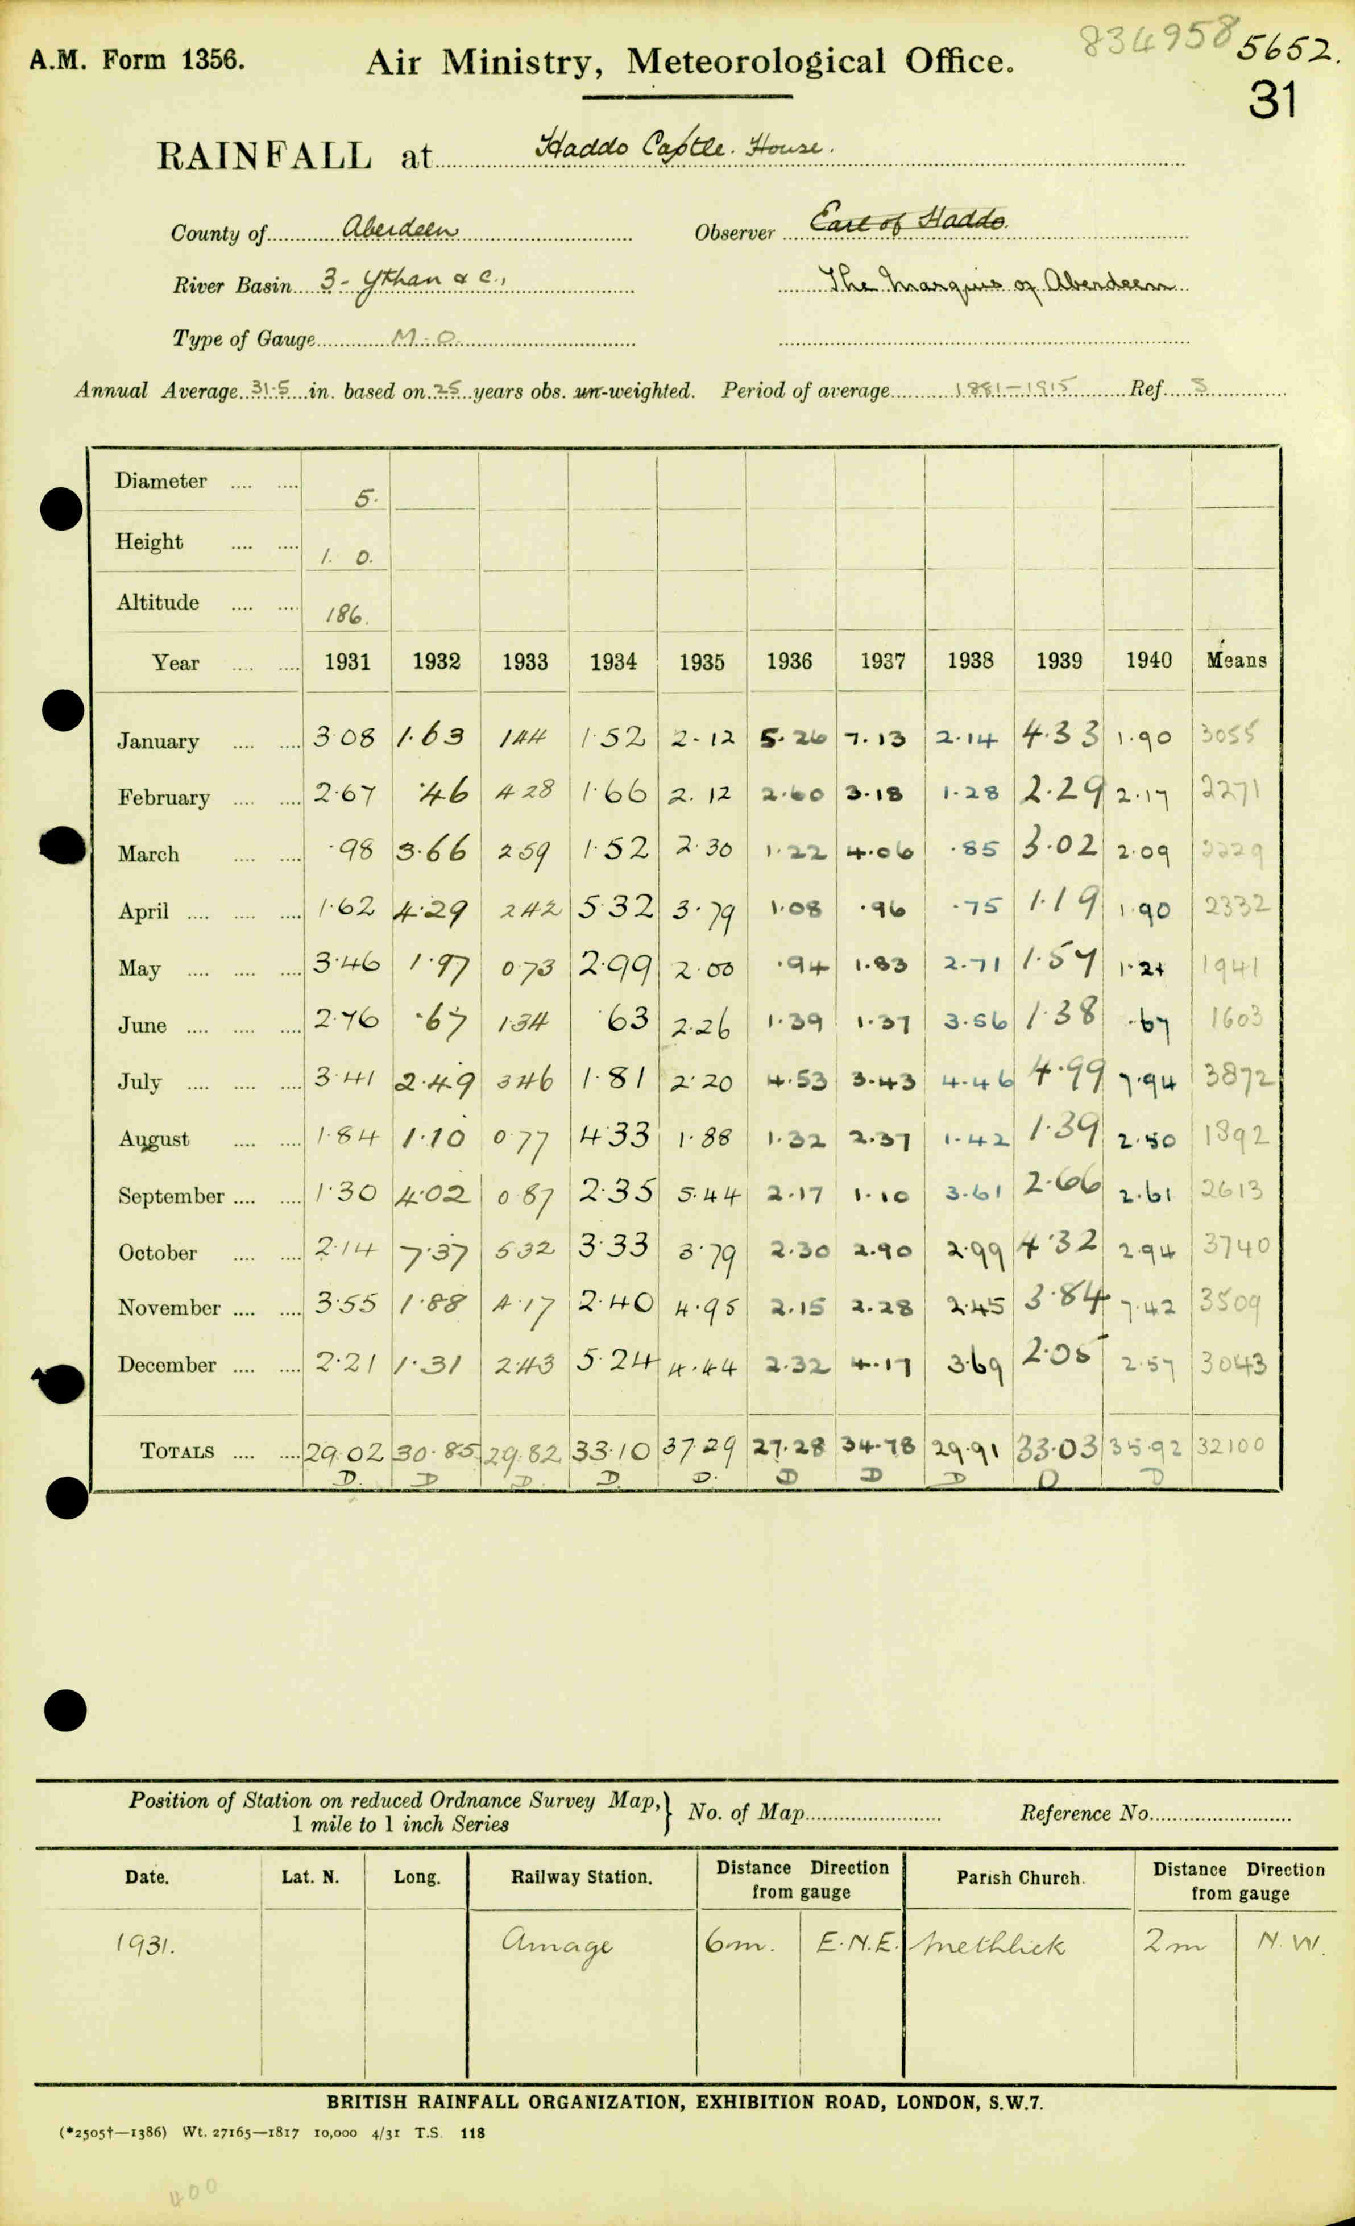 834958 5652.
A.M. Form 1356. Air Ministry, Meteorological Office.
31
RAINFALL at Haddo Castle. House.
County of Aberdeen Observer Earl of Haddo.
River Basin 3 - Ythan & c., The Marquis of Aberdeen
Type of Gauge M.O.
Annual Average 31.5 in. based on 25 years obs. un-weighted. Period of average 1881-1915 Ref. S
Diameter .... .... 5.
Height .... .... 1. 0.
Altitude .... .... 186.
Year .... .... 1931 1932 1933 1934 1935 1936 1937 1938 1939 1940 Means
January .... .... 3 08 1.63 1 44 1.52 2.12 5.26 7.13 2.14 4.33 1.90 3055
February .... .... 2.67 .46 4 28 1.66 2.12 2.60 3.18 1.28 2.29 2.17 2271
March .... .... .98 3.66 2 59 1.52 2.30 1.22 4.06 .85 3.02 2.09 2229
April .... .... .... 1.62 4.29 2 42 5.32 3.79 1.08 .96 .75 1.19 1.90 2332
May .... .... .... 3.46 1.97 0.73 2.99 2.00 .94 1.83 2.71 1.57 1.21 1941
June .... .... .... 2.76 .67 1.34 .63 2.26 1.39 1.37 3.56 1.38 .67 1603
July .... .... .... 3.41 2.49 3 46 1.81 2.20 4.53 3.43 4.46 4.99 7.94 3872
August .... .... 1.84 1.10 0.77 4.33 1.88 1.32 2.37 1.42 1.39 2.50 1892
September .... .... 1.30 4.02 0.87 2.35 5.44 2.17 1.10 3.61 2.66 2.61 2613
October .... .... 2.14 7.37 5 32 3.33 3.79 2.30 2.90 2.99 4.32 2.94 3740
November .... .... 3.55 1.88 4.17 2.40 4.95 2.15 2.28 2.45 3.84 7.42 3509
December .... .... 2.21 1.31 2.43 5.24 4.44 2.32 4.17 3.69 2.05 2.57 3043
TOTALS .... .... 29.02 30.85 29.82 33.10 37.29 27.28 34.78 29.91 33.03 35.92 32100
D. D D. D. D. D D D D D
Position of Station on reduced Ordnance Survey Map,} No. of Map Reference No.
1 mile to 1 inch Series
Date. Lat. N. Long. Railway Station. Distance Direction from gauge Parish Church. Distance Direction from gauge
1931. Arnage 6m. E.N.E. Methlick 2m N.W.
BRITISH RAINFALL ORGANIZATION, EXHIBITION ROAD, LONDON, S.W.7.
(*2505†—1386) Wt. 27165—1817 10,000 4/31 T.S. 118
400